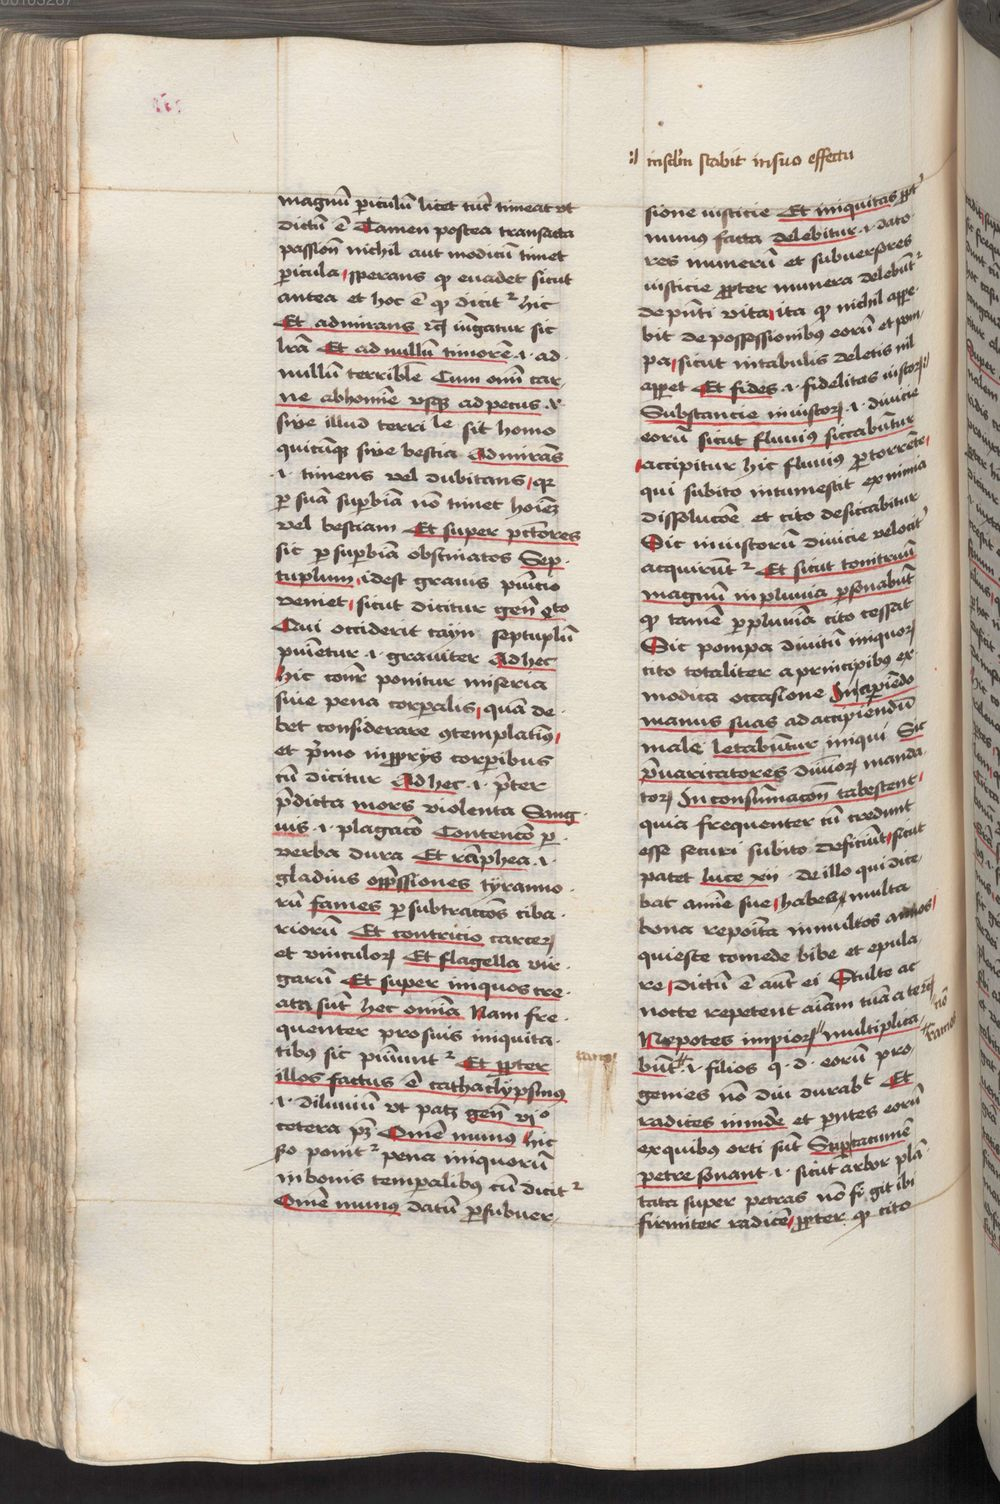 :) insclm̄ stabit in suo effectu
magnū periculū licet tūc timeat vt
dictū ē Tamen postea transacta
passiōn nichil aut modicū timet
pericula sperans qꝫ euadet sicut
antea et hoc ē qꝫ dicit² hic
Et admirans iūgatur sic
lrā Et ad nullū timorē .i. ad
nullū terribile Cum om̄i car
ne ab homīe vsqꝫ ad pecus
siue illud terribile sit homo
quicūqꝫ siue bestia Admirās
.i. timens vel dubitans qꝛ
per suā superbiā nō timet hoīeꝫ
vel bestiam Et super pctōres
sic per superbiā obstinatos Sep
tuplum idest grauis pūicio
veniet sicut dicitur gen̄ qͬto
Qui occiderit cayn septuplū
pūietur .i. grauiter Ad hec
hic ponitur miseria
siue pena corperalis quā de
bet considerare ꝯtemplatiuꝰ
et pͥmo in pprijs corperibus
cū dicitur Ad hec .i. pͥter
p̄dicta mors violenta Sang
uis .i. plagacō Contencō per
verba dura Et rāphea .i.
gladius opp̄ssiones tyranno
rū fames per subtraccōs ciba
riorū Et contricio carceꝝ
et vinculoꝝ Et flagella vir
garū Et super iniquos cre
ata sūt hec om̄ia Nam fre
quenter pro suis iniquita
tibꝰ sic pūiunt² Et ppter
illos factus ē cathaclypsmꝰ
.i. diluuiū vt patꝫ gen̄ vi°
cetera pꝫ Om̄e munus hic
ponit² pena iniquorū
in bonis temperalibꝰ cū dicit²
Om̄e munꝰ datū per subuer
sione iusticie Et iniquitas ppt²
munus facta delebitur .i. dato
res munerū et subuersores
iusticie ppter munera delebūt²
de pn̄ti vita ita qꝫ nichil appe
bit de possessionibꝰ eorū et pom
pa sicut in tabulis deletis nil
apperet Et fides .i. fidelitas iustoꝝ :)
Substancie iniustoꝝ .i. diuicie
eorū sicut fluuiꝰ siccabūtur
accipitur hic fluuiꝰ per torrēte
qui subito intumescit ex nimia
dissolucōe et cito desiccabitur
Sic iniustorū diuicie velocit²
acquirūt² Et sicut tonitruū
magnū in pluuia personabūt
qꝫ tamē per pluuiā cito cessat
Sic pompa diuitū iniquoꝝ
cito totaliter a principibꝰ ex
modica occasione In aperiēdo
manus suas ad accipiendū
male letabūtur iniqui Sic
p̄uaricatores diuinoꝝ manda
toꝝ In consūmacōn̄ tabescent
quia frequenter cū credunt
esse securi subito deficiūt sicut
patet luce xij de illo qui dice
bat anīe sue habes multa
bona reposita in multos annos
quieste comede bibe et epula
re Dictū ē aūt ei Stulte ac
nocte repetent aīam tuā a te
Nepotes impioꝝ multiplica
būt .i. filios q. d. eorū pro
genies nō diu durabᵗ Et
radices inmūde et pn̄tes eorū
ex quibus orti sūt Super cacumē
petre sonant .i. sicut arbor plā
tata super petras nō figit ibi
firmiter radicē ppter qꝫ cito
ramos